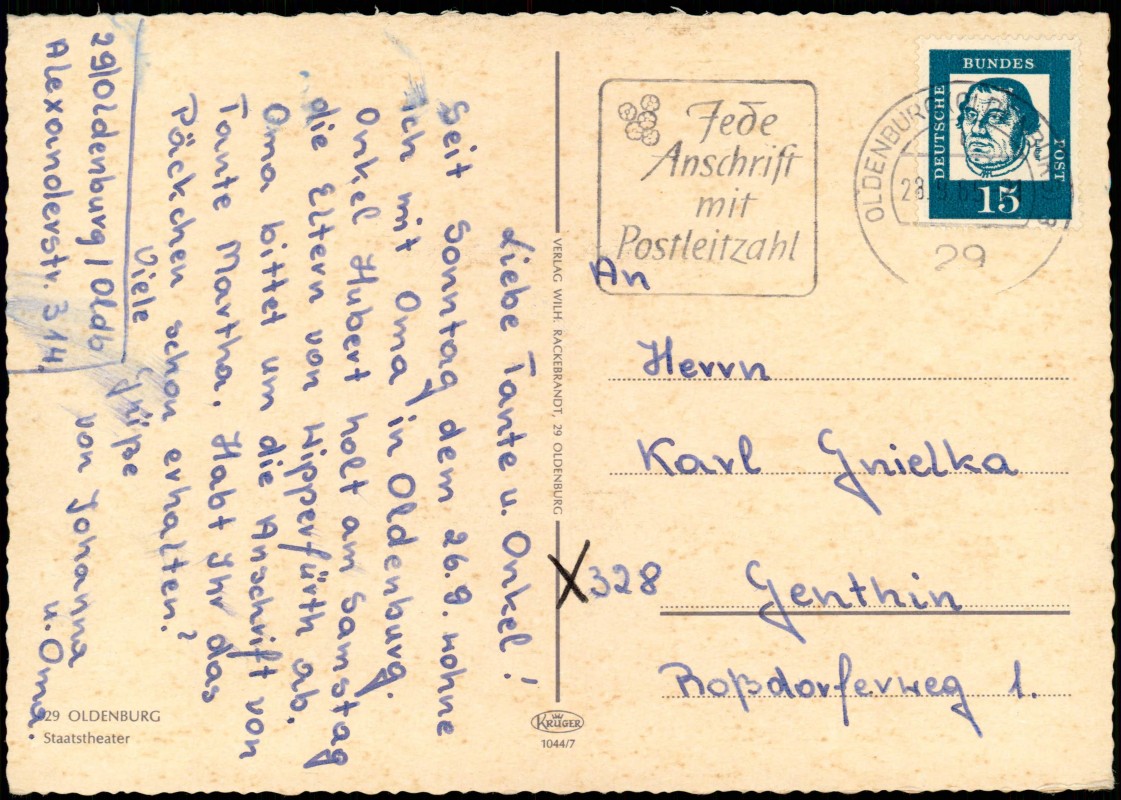 29/Oldenburg / Oldb
Alexanderstr. 314.
Liebe Tante u. Onkel!
Seit Sonntag dem 26.9. wohne
ich mit Oma in Oldenburg.
Onkel Hubert holt am Samstag
die Eltern von Wipperfürth ab.
Oma bittet um die Anschrift von
Tante Martha. Habt Ihr das
Päckchen schon erhalten?
Viele Grüße
von Johanna
u. Oma.
29 OLDENBURG
Staatstheater
VERLAG WILH. RACKEBRANDT, 29 OLDENBURG
KRÜGER
1044/7
Jede
Anschrift
mit
Postleitzahl
OLDENBURG
28.9.65
29
DEUTSCHE
BUNDES
POST
15
An
Herrn
Karl Gnielka
X 328 Genthin
Roßdorferweg 1.